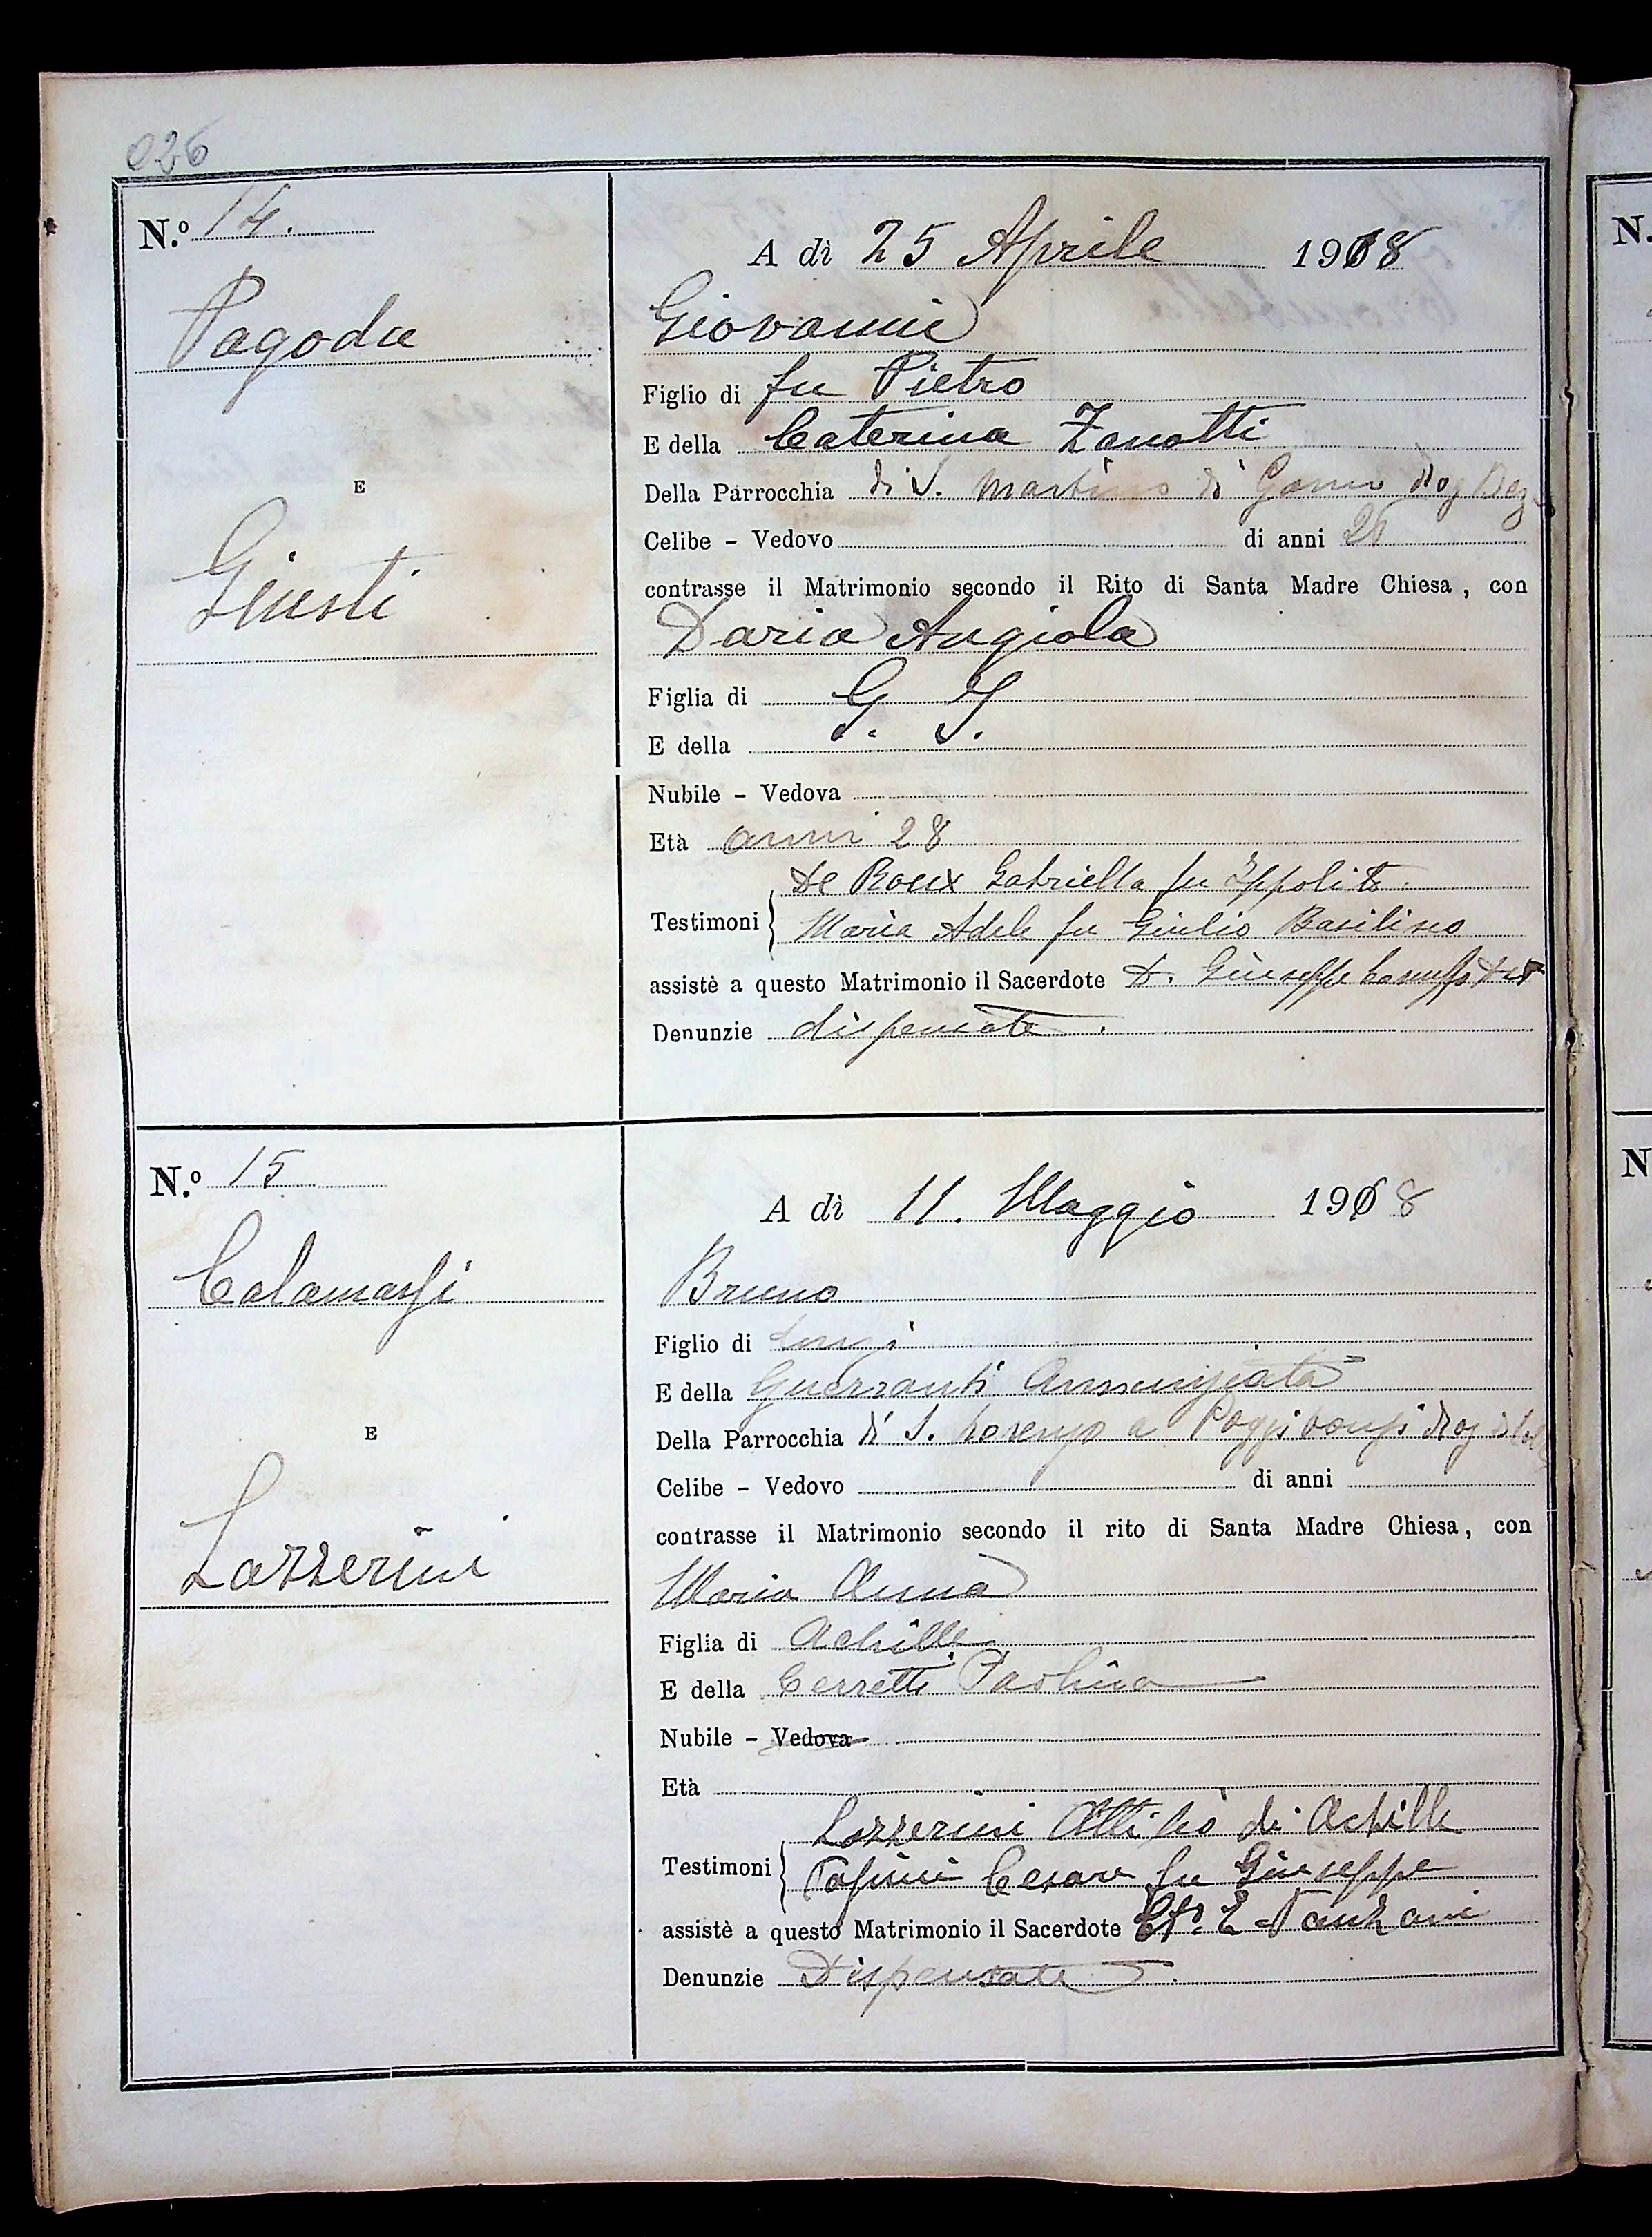 026
N.º 14.
A dì 25 Aprile 1918
Pagoda
Giovanni
Figlio di fu Pietro
E della Caterina Zanotti
Della Parrocchia di S. Martino di
E
Celibe - Vedovo di anni 26
Giusti
contrasse il Matrimonio secondo il Rito di Santa Madre Chiesa, con
Daria Angiola
Figlia di G.
E della
Nubile - Vedova
Età anni 28
De Roux Gabriella fu Ippolito.
Testimoni Maria Adele fu Giulio Basilisco
assistè a questo Matrimonio il Sacerdote D. Giuseppe
Denunzie dispensate.
N.º 15
A dì 11. Maggio 1918
Calamassi
Bruno
Figlio di Luigi
E della Guerranti Annunziata
Della Parrocchia di S. Lorenzo a Poggibonsi
E
Celibe - Vedovo di anni
Lazzerini
contrasse il Matrimonio secondo il rito di Santa Madre Chiesa, con
Maria Anna
Figlia di Achille
E della Cerretti Paolina
Nubile - Vedova
Età
Lazzerini Attilio di Achille
Testimoni Cesare fu Giuseppe
assistè a questo Matrimonio il Sacerdote
Denunzie Dispensate.
N.
N